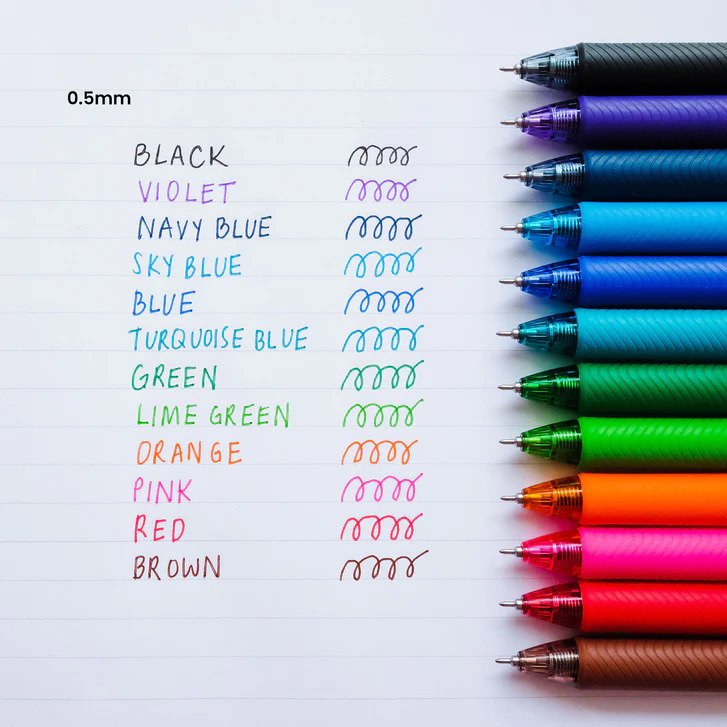 0.5mm
BLACK
VIOLET
NAVY BLUE
SKY BLUE
BLUE
TURQUOISE BLUE
GREEN
LIME GREEN
ORANGE
PINK
RED
BROWN